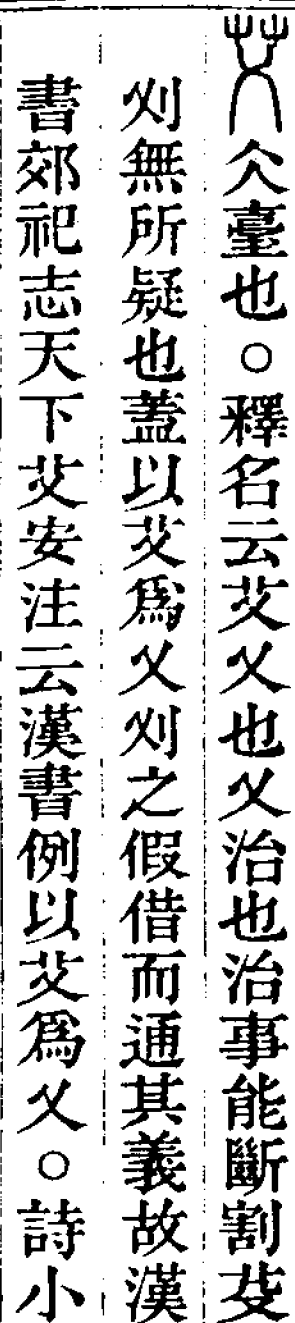 艾久臺也○釋名云艾乂也乂治也治事能斷割芟
刈無所疑也蓋以艾爲乂刈之假借而通其義故漢
書郊祀志天下艾安注云漢書例以艾爲乂○詩小